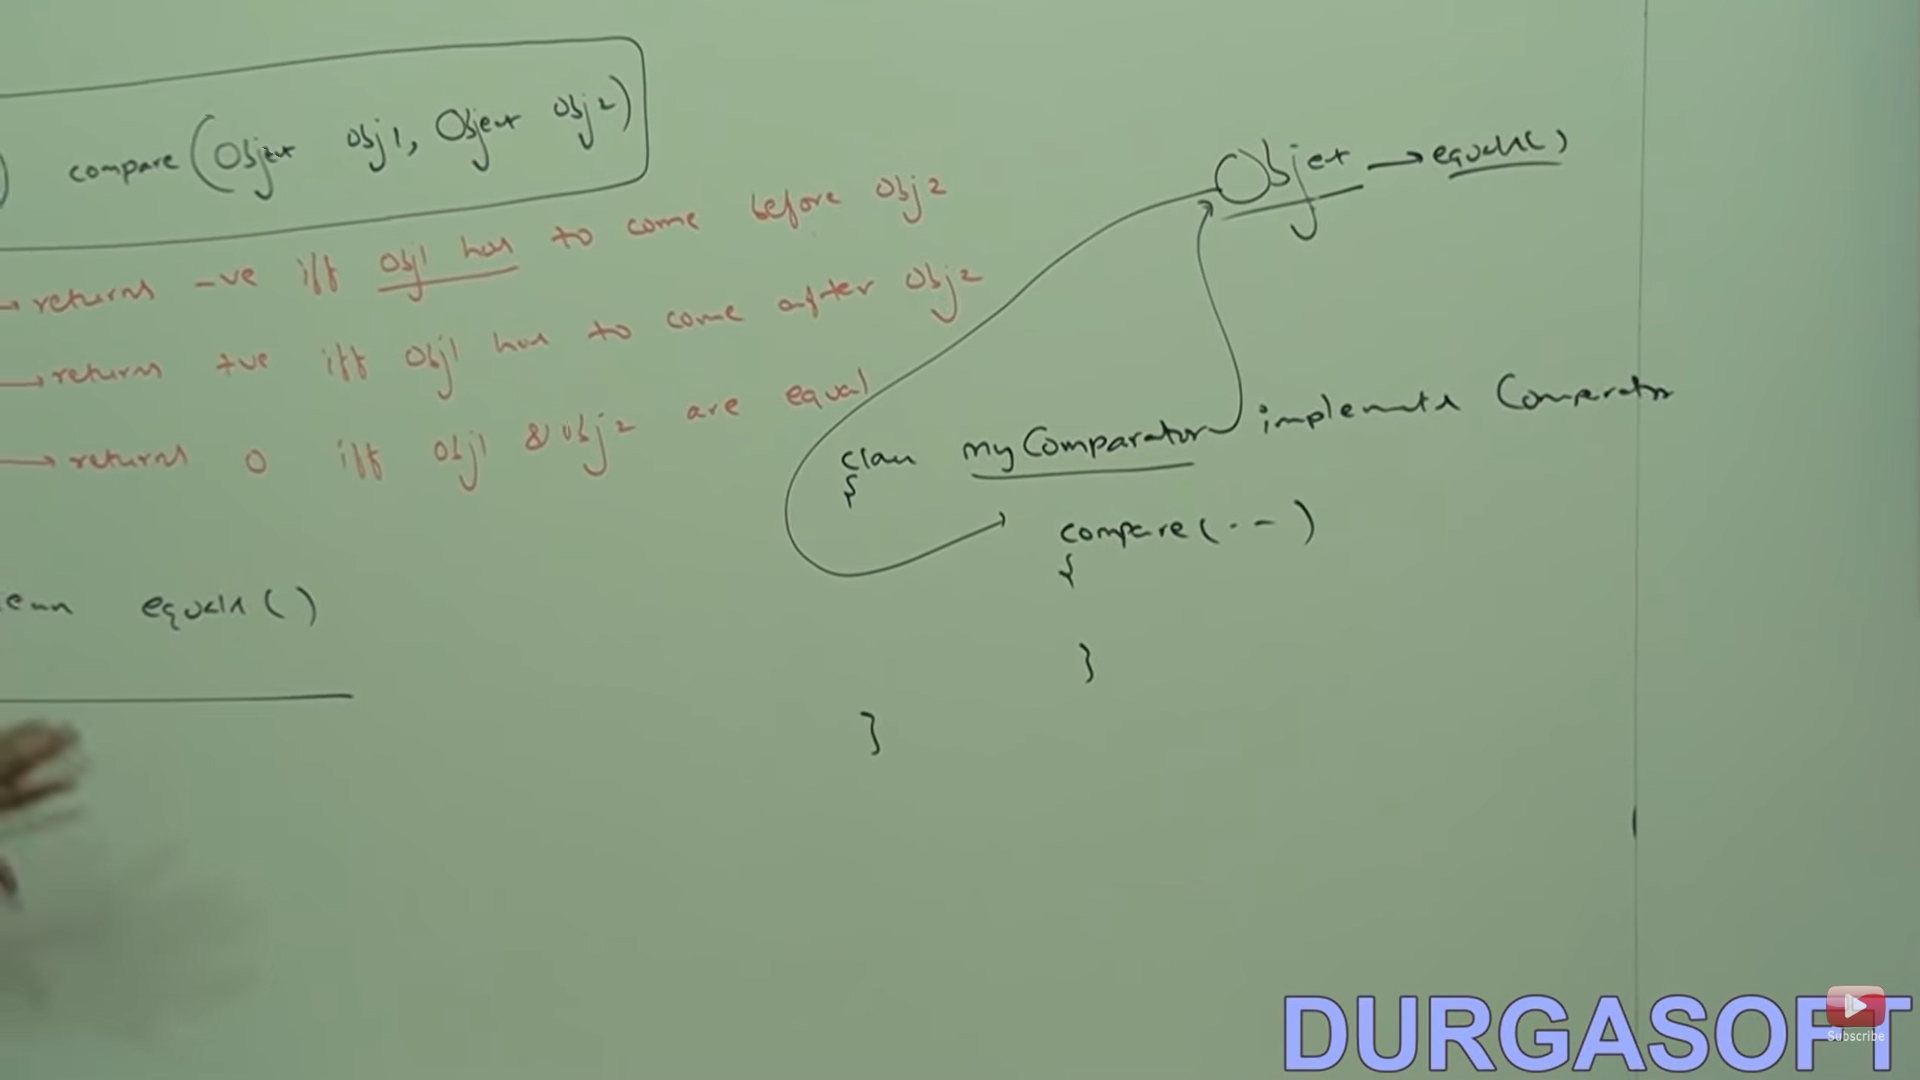 ) compare (Object obj1, Object obj2)
→ returns -ve iff obj1 has to come before obj2
→ returns +ve iff obj1 has to come after obj2
→ returns 0 iff obj1 & obj2 are equal
ean equals ( )
Object → equals( )
class myComparator implements Comparator
{
compare ( . . - )
{
}
}
DURGASOFT
Subscribe